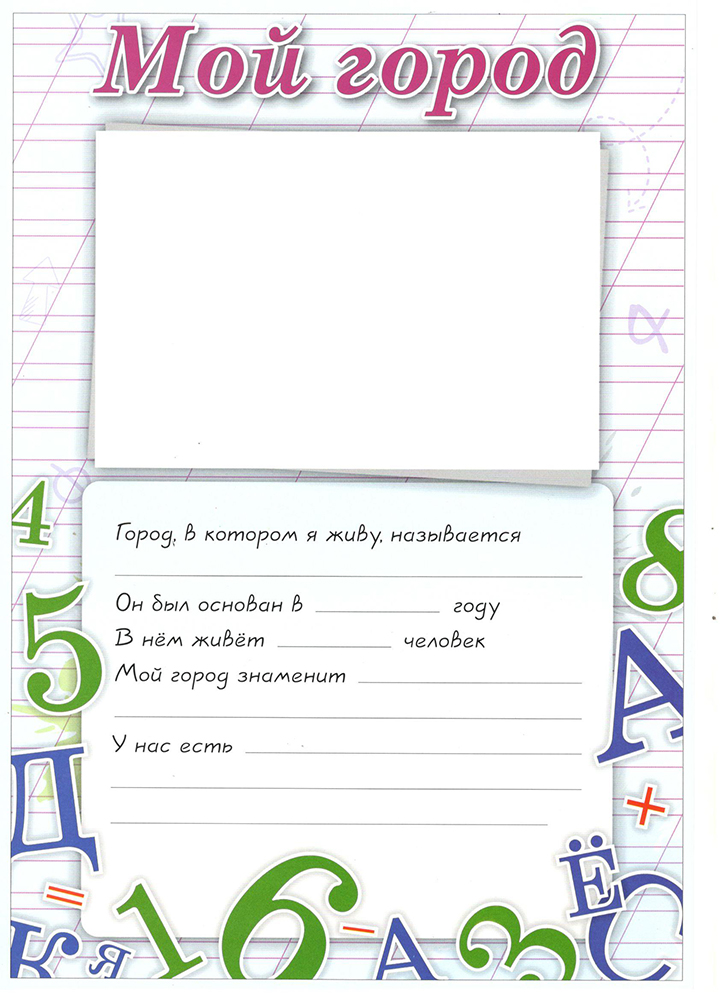 Мой город
Город, в котором я живу, называется
Он был основан в ____________ году
В нём живёт ____________ человек
Мой город знаменит ____________
У нас есть ____________
4
8
5
А
Д
+
=
Ё
К
я
1
6
–
А
3
С
ф